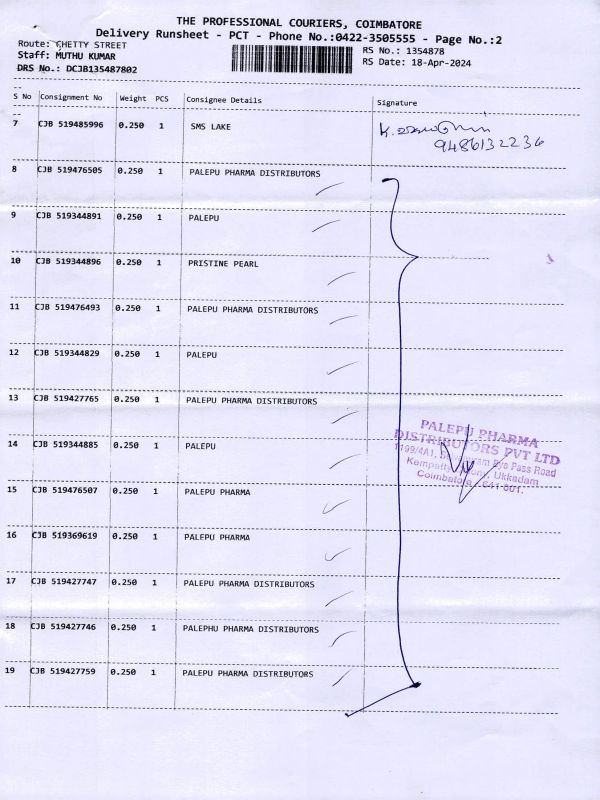 THE PROFESSIONAL COURIERS, COIMBATORE
Delivery Runsheet - PCT - Phone No.:0422-3505555 - Page No.:2
Route: CHETTY STREET
RS No.: 1354878
Staff: MUTHU KUMAR
RS Date: 18-Apr-2024
DRS No.: DCJB135487802
S No Consignment No Weight PCS Consignee Details Signature
7 CJB 519485996 0.250 1 SMS LAKE
9486132236
8 CJB 519476505 0.250 1 PALEPU PHARMA DISTRIBUTORS
9 CJB 519344891 0.250 1 PALEPU
10 CJB 519344896 0.250 1 PRISTINE PEARL
11 CJB 519476493 0.250 1 PALEPU PHARMA DISTRIBUTORS
12 CJB 519344829 0.250 1 PALEPU
13 CJB 519427765 0.250 1 PALEPU PHARMA DISTRIBUTORS
14 CJB 519344885 0.250 1 PALEPU
PALEPU PHARMA
DISTRIBUTORS PVT LTD
1199/4A1, Bye Pass Road
Ukkadam
Coimbatore - 641 001.
15 CJB 519476507 0.250 1 PALEPU PHARMA
16 CJB 519369619 0.250 1 PALEPU PHARMA
17 CJB 519427747 0.250 1 PALEPU PHARMA DISTRIBUTORS
18 CJB 519427746 0.250 1 PALEPHU PHARMA DISTRIBUTORS
19 CJB 519427759 0.250 1 PALEPU PHARMA DISTRIBUTORS